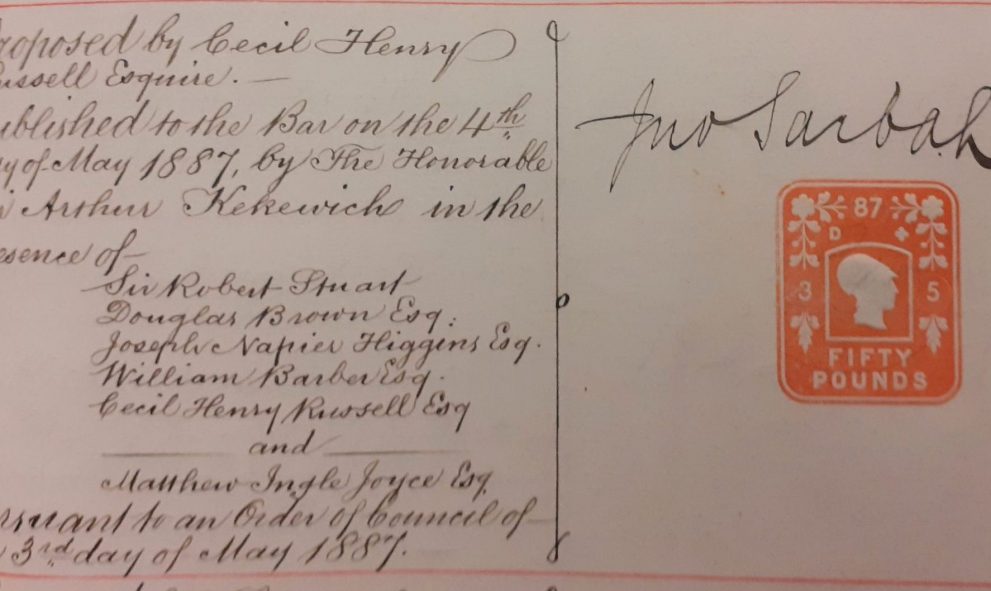 roposed by Cecil Henry
ussell Esquire. —
ublished to the Bar on the 4th
ay of May 1887, by The Honorable
Arthur Kekewich in the
esence of —
Sir Robert Stuart
Douglas Brown Esq:
Joseph Napier Higgins Esq.
William Barber Esq.
Cecil Henry Russell Esq
and
Matthew Ingle Joyce Esq.
rsuant to an Order of Council of
3rd day of May 1887.
Jno Sarbah
87
D
3 5
FIFTY
POUNDS